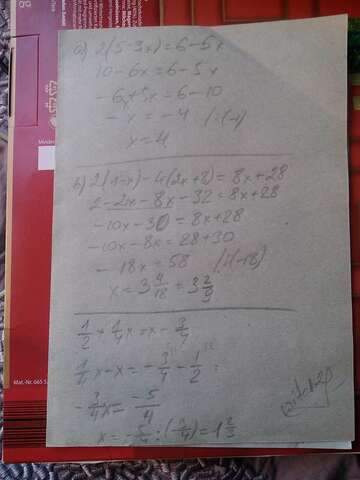 a) 2(5-3x)=6-5x
10-6x=6-5x
-6x+5x=6-10
-x=-4 /:(-1)
x=4
b) 2(1-x)-4(2x+8)=8x+28
2-2x-8x-32=8x+28
-10x-30=8x+28
-10x-8x=28+30
-18x=58 /:(-18)
x=3 4/18=3 2/9
1/2+1/4x=x-3/4
1/4x-x=-3/4-1/2
-3/4x=-5/4
x=-5/4:(-3/4)=1 2/3
Mat.-Nr. 665